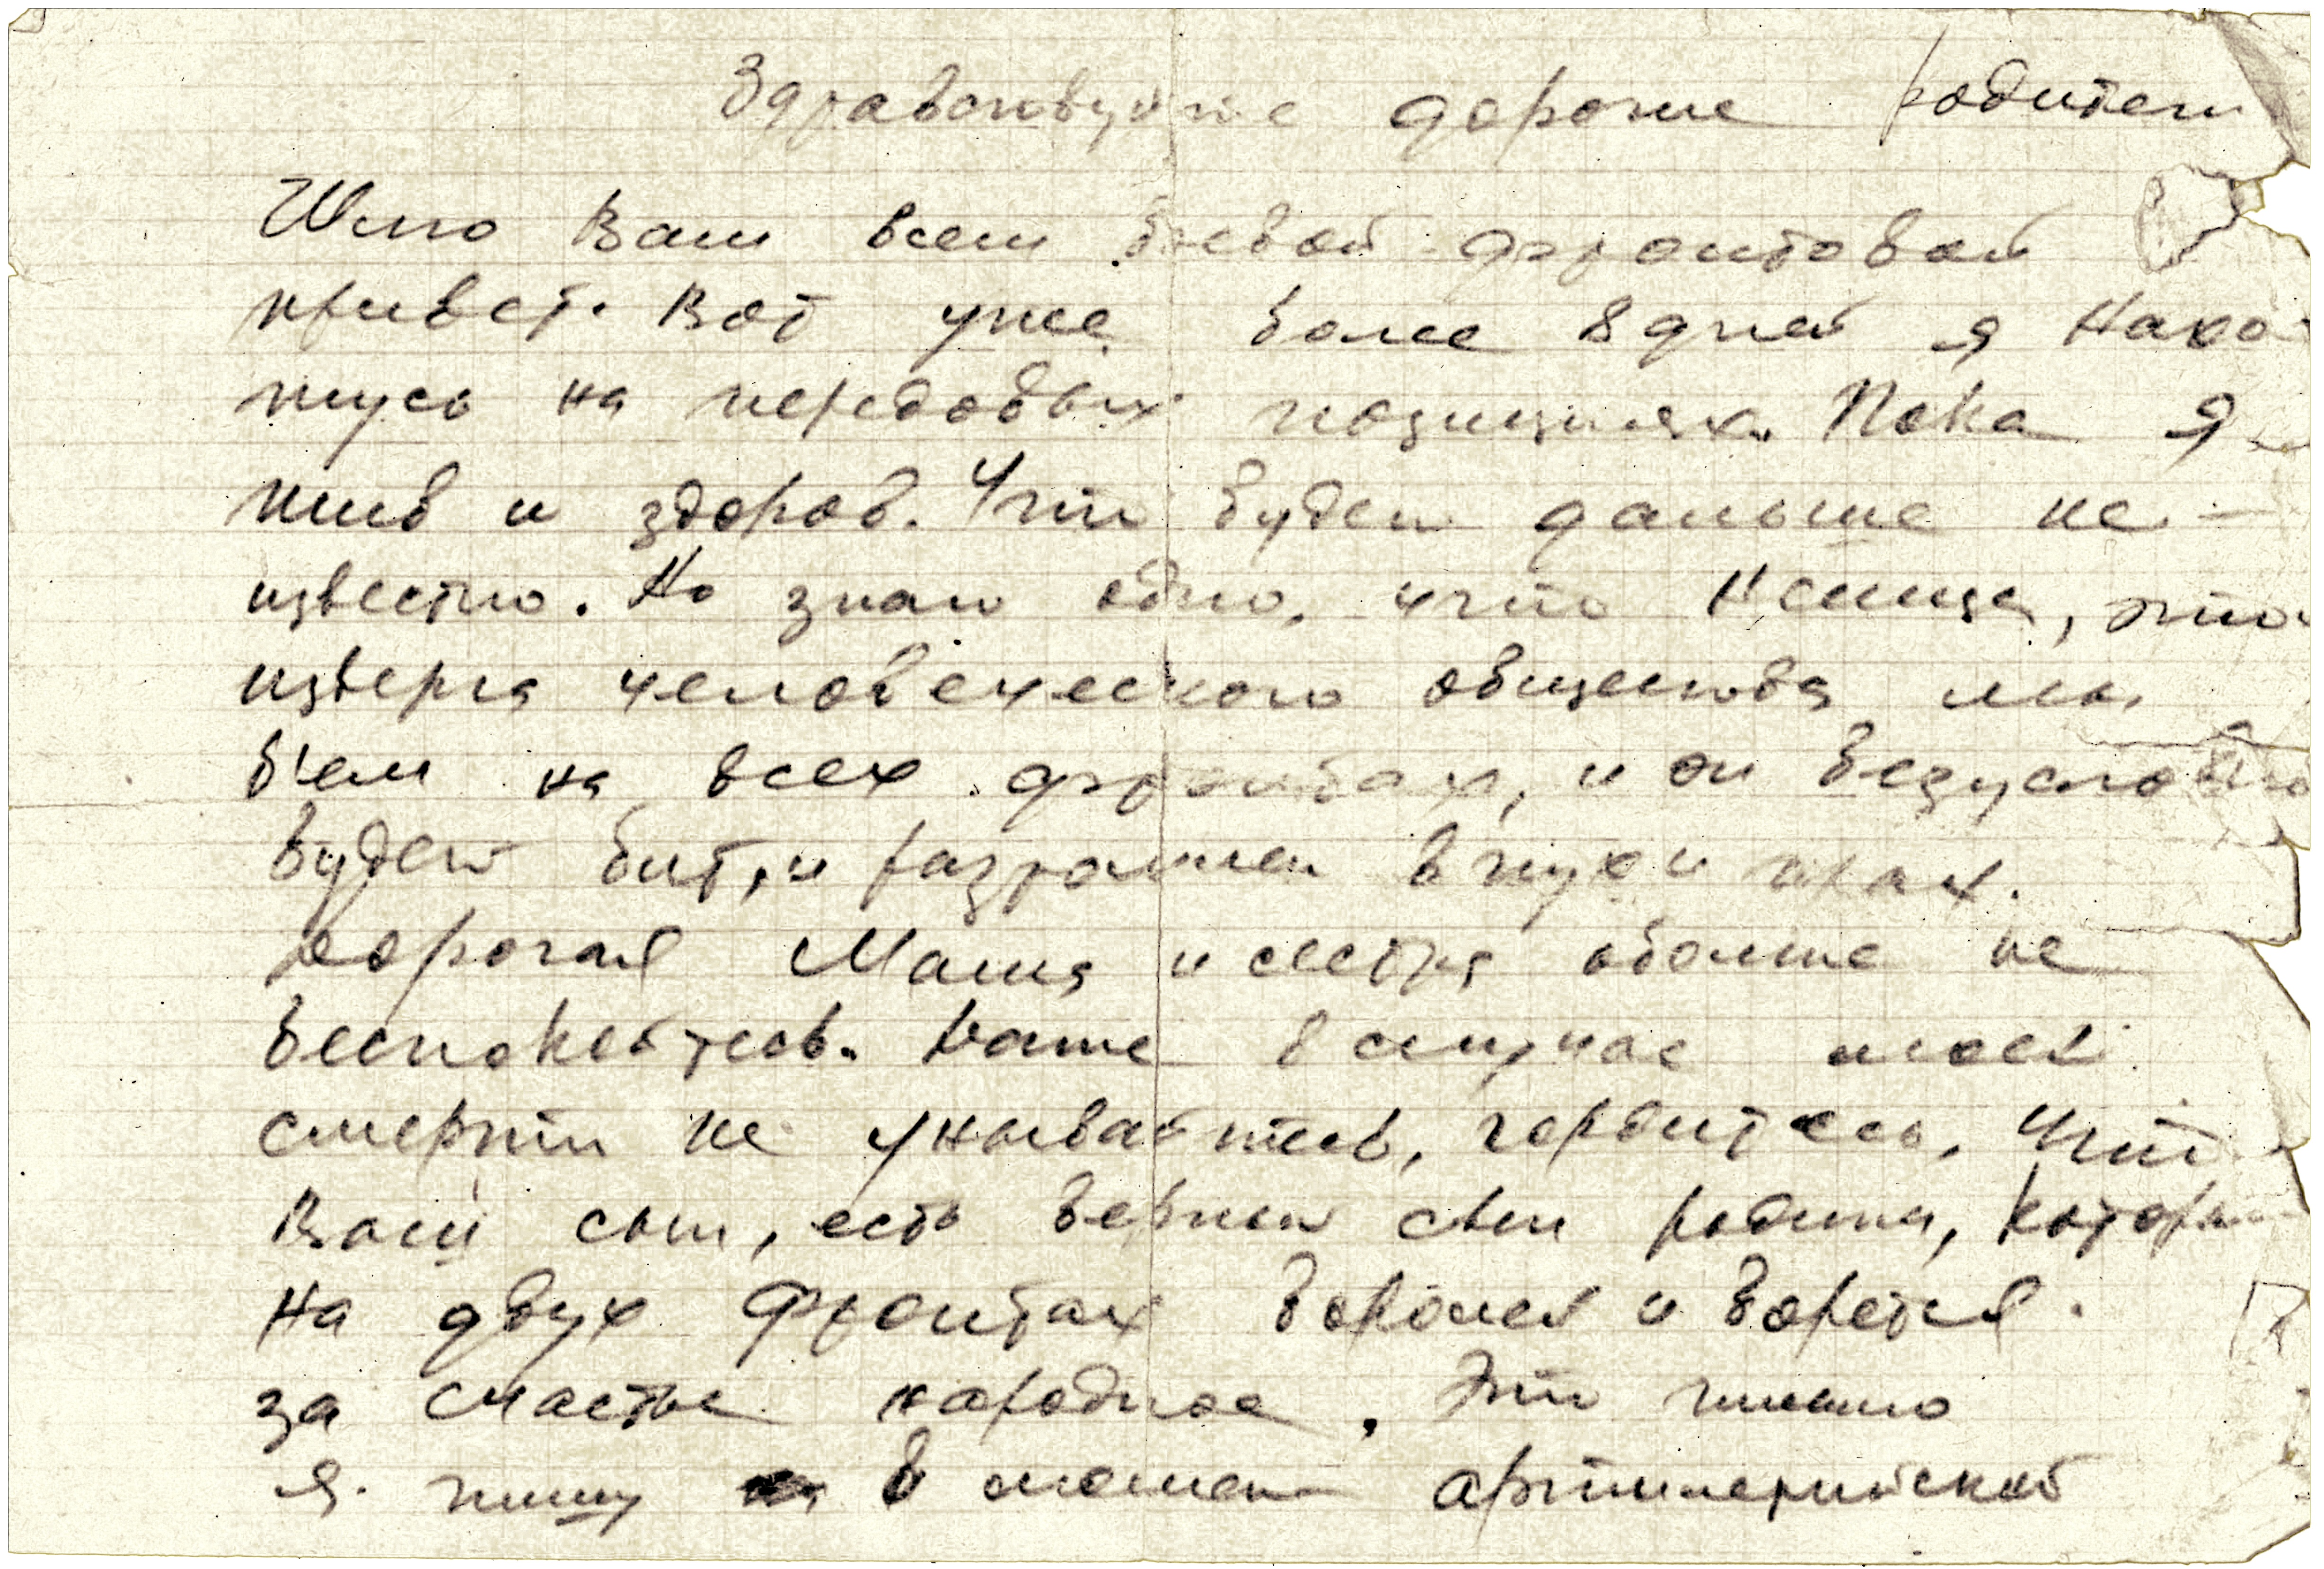 Здравствуйте дорогие родители
Шлю Вам всем боевой фронтовой
привет. Вот уже более 8 дней я нахо
жусь на передовых позициях. Пока я
жив и здоров. Что будет дальше не-
известно. Но знаю одно, что Немца, это
изверга человеческого общества мы
бьем на всех фронтах, и он безусловно
будет бит, и разгромлен в пух и прах.
Дорогая Мама и сестра обо мне не
беспокойтесь. Даже в случае моей
смерти не унывайтесь, гордитесь, что
Ваш сын, есть верный сын родины, который
на двух фронтах боролся и борется
за счастье народное. Это письмо
я пишу в момент артиллерийской